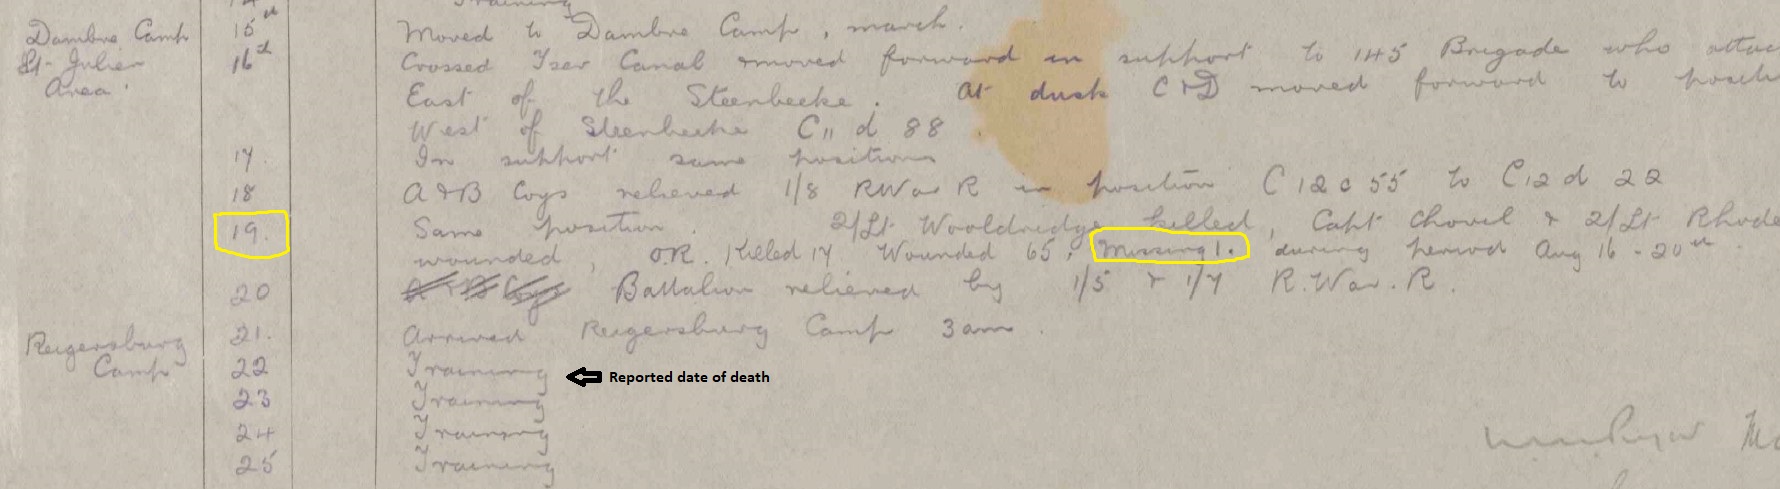 Training
Dambre Camp 15th Moved to Dambre Camp, march.
St. Julien 16th Crossed Yser Canal & moved forward in support to 145 Brigade who attac
Area. East of the Steenbeeke. At dusk C & D moved forward to positi
West of Steenbeeke C11 d 88.
17. In support same positions
18 A & B Coys relieved 1/8 R War R in position C 12 c 55 to C12 d 22
19. Same position. 2/Lt Wooldridge killed, Capt Chovil & 2/Lt Rhode
wounded, O.R. Killed 17 Wounded 65, Missing 1. during period Aug 16 - 20th.
20 A & B Coys Battalion relieved by 1/5 & 1/7 R. War. R.
Reigersburg 21. Arrived Reigersburg Camp 3am.
Camp 22 Training Reported date of death
23 Training
24 Training
25 Training